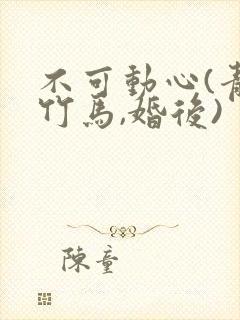 不可動心(青
竹馬,婚後)
陳童